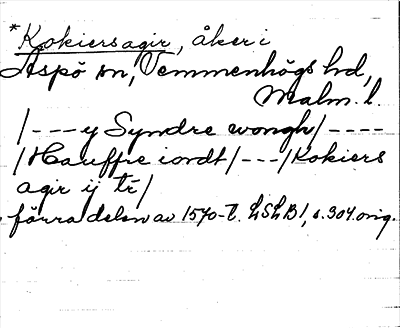 *Kokiersagir, åker i
Äspö sn, Vemmenhögs hd,
Malm. l.
/---y Syndre wongh/----
/Hauffre iordt/---/Kokiers
agir ij tr/
förra delen av 1570-t. LSLB1, s. 304 orig.